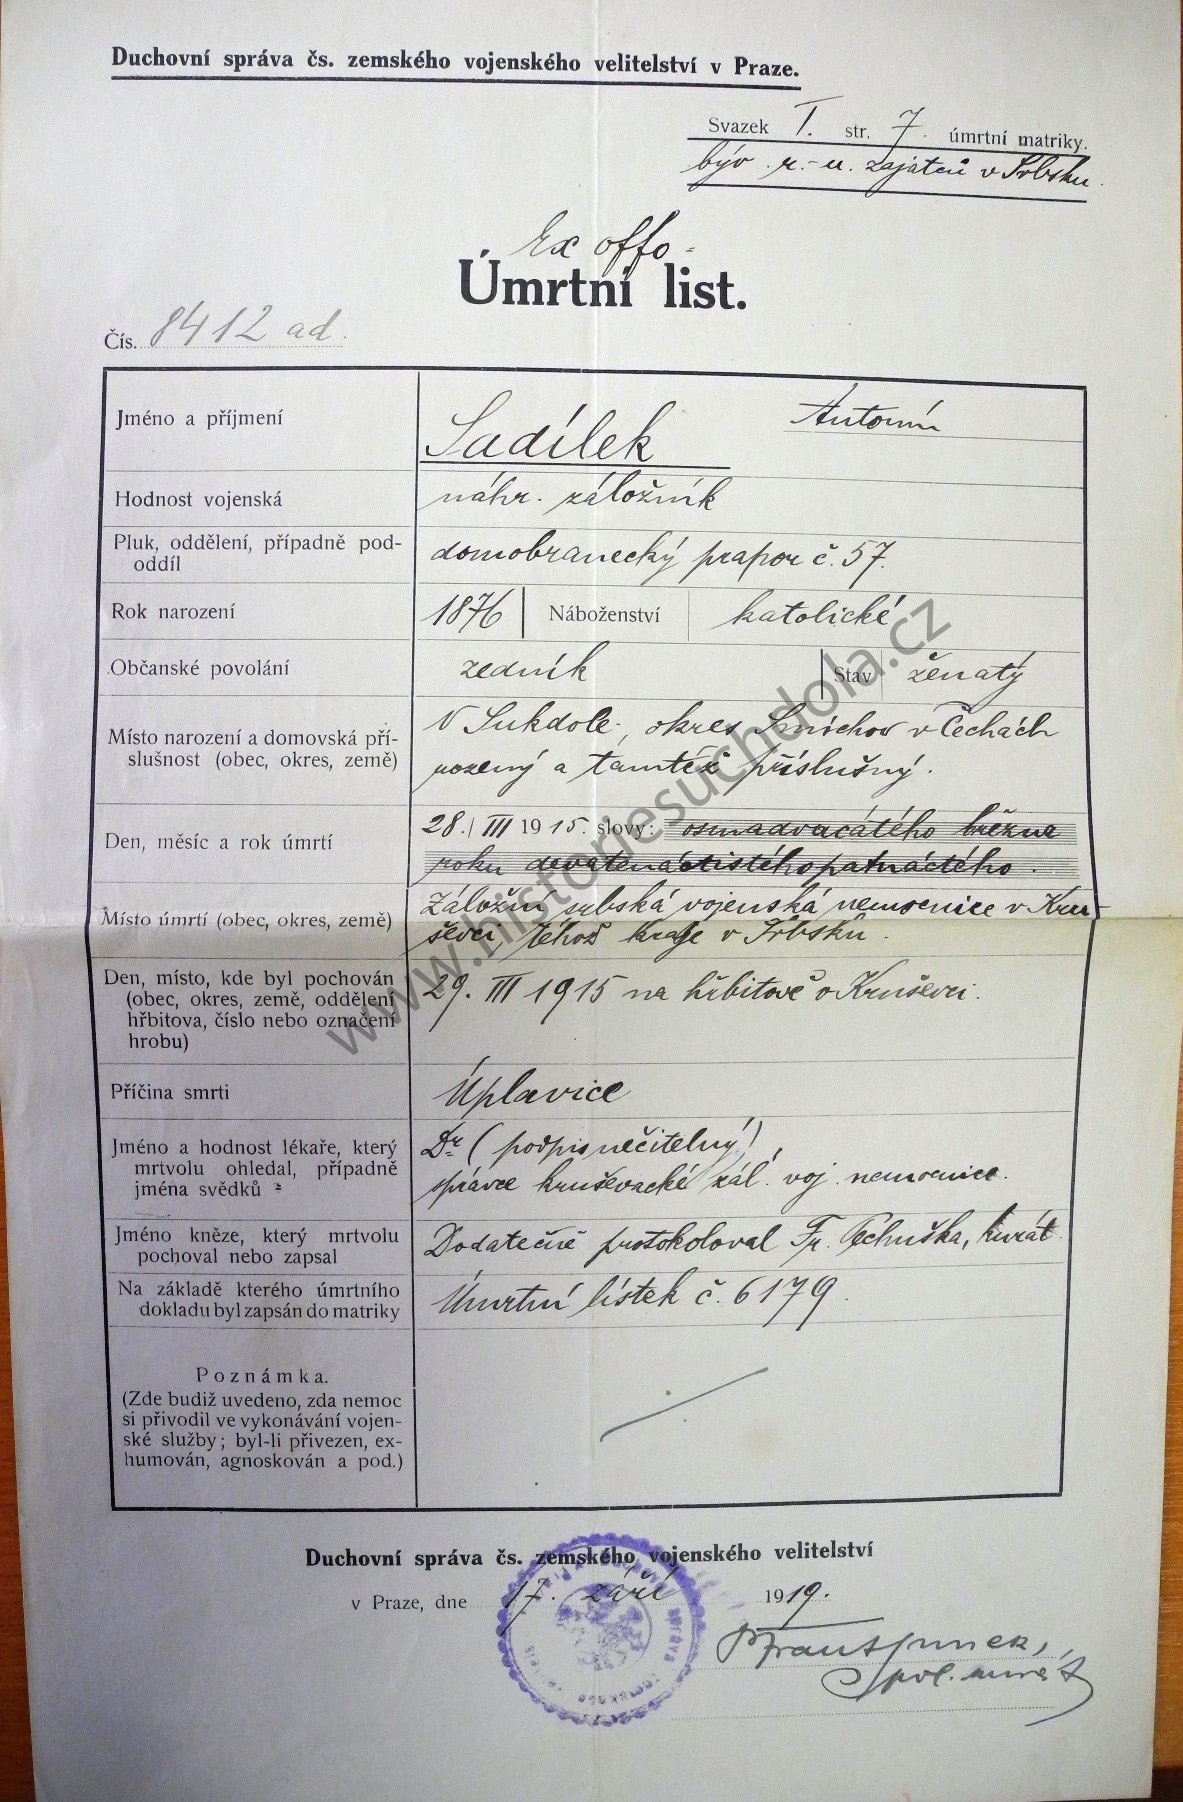 Duchovní správa čs. zemského vojenského velitelství v Praze.
Svazek I. str. 7. úmrtní matriky.
býv. r.-u. zajatců v Srbsku.
Ex offo
Úmrtní list.
Čís. 8412 ad.
Jméno a příjmení
Sadílek Antonín
Hodnost vojenská
náhr. záložník
Pluk, oddělení, případně pod-
oddíl
domobranecký prapor č. 57.
Rok narození
1876 Náboženství katolické
Občanské povolání
zedník Stav ženatý
Místo narození a domovská pří-
slušnost (obec, okres, země)
V Sukdole, okres Smíchov v Čechách
rozený a tamtéž příslušný.
Den, měsíc a rok úmrtí
28. III 1915. slovy: osmadvacátého března
roku devatenáctistéhopatnáctého.
Místo úmrtí (obec, okres, země)
Záložní srbská vojenská nemocnice v Kru-
ševci, téhož kraje v Srbsku.
Den, místo, kde byl pochován
(obec, okres, země, oddělení
hřbitova, číslo nebo označení
hrobu)
29. III 1915 na hřbitově v Kruševci.
Příčina smrti
Úplavice
Jméno a hodnost lékaře, který
mrtvolu ohledal, případně
jména svědků
Dr (podpis nečitelný),
správce kruševacké zál. voj. nemocnice.
Jméno kněze, který mrtvolu
pochoval nebo zapsal
Dodatečně protokoloval Fr. Čechuška, kurát.
Na základě kterého úmrtního
dokladu byl zapsán do matriky
Úmrtní lístek č. 6179.
Poznámka.
(Zde budiž uvedeno, zda nemoc
si přivodil ve vykonávání vojen-
ské služby; byl-li přivezen, ex-
humován, agnoskován a pod.)
Duchovní správa čs. zemského vojenského velitelství
v Praze, dne 17. září 1919.
pol. kurát
www.historiesuchdola.cz